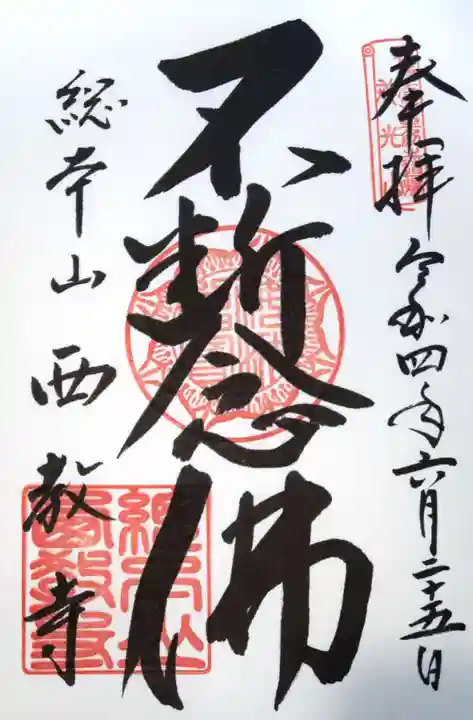 奉拝
令和四年六月二十五日
不断念佛
総本山 西教寺